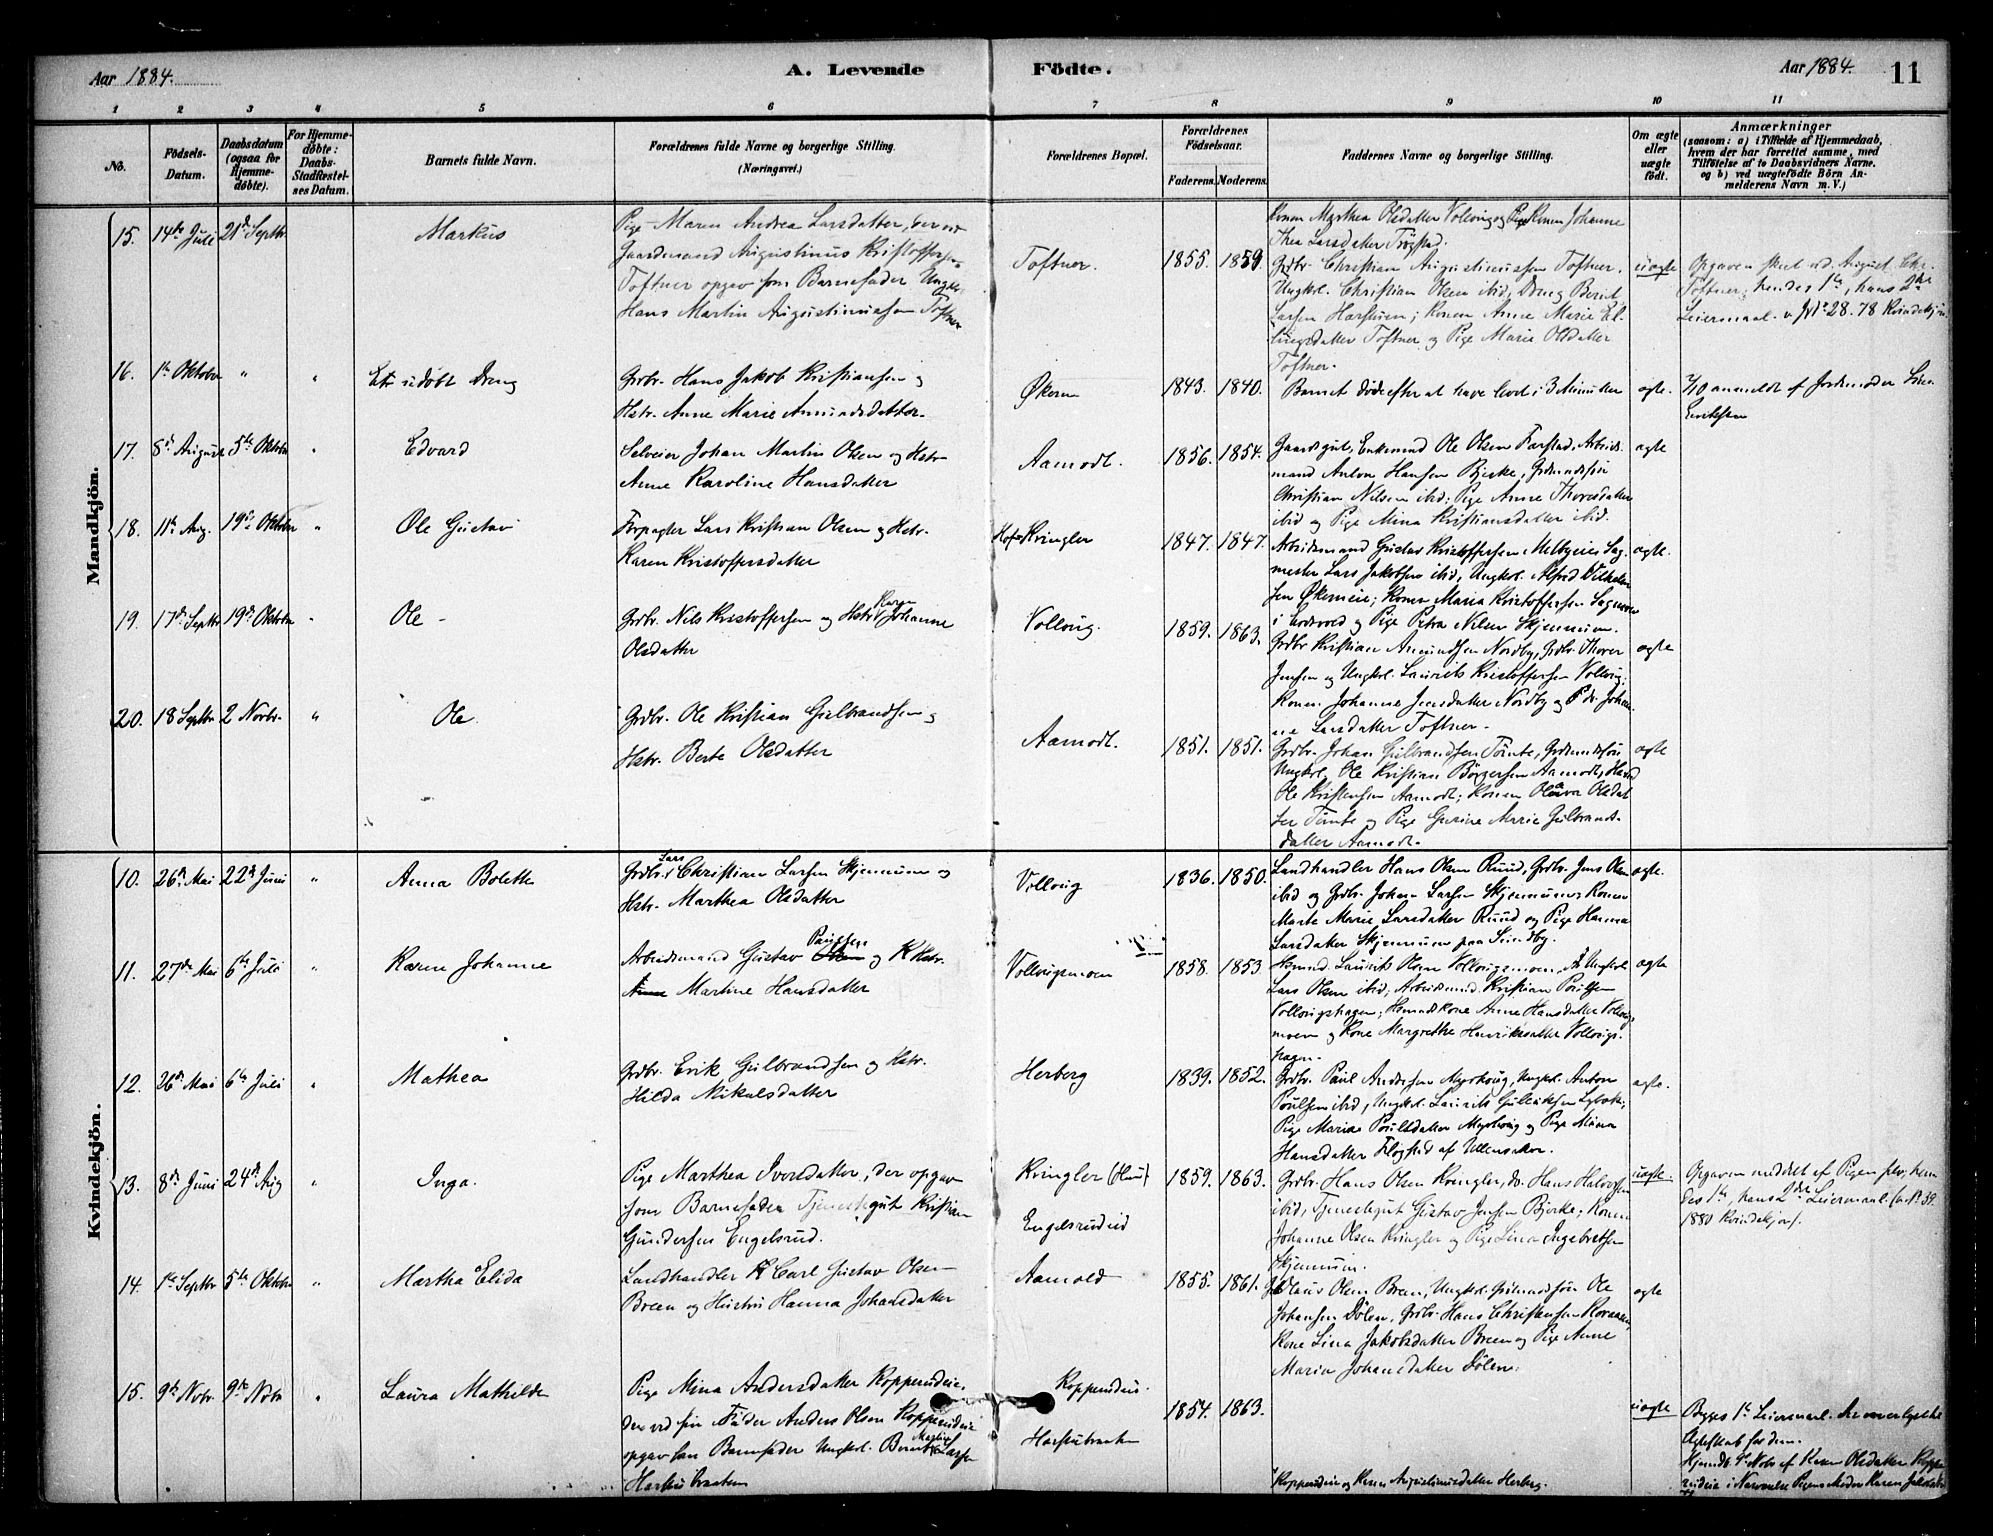 Aar 1884.
A. Levende Födte.
Aar 1884. 11
1 2 3 4 5 6 7 8 9 10 11
No.
Födsels-
Datum.
Daabsdatum
(ogsaa for
Hjemme-
döbte).
For Hjemme-
döbte:
Daabs-
Stadfæstel-
ses Datum.
Barnets fulde Navn.
Forældrenes fulde Navne og borgerlige Stilling.
(Næringsvei.)
Forældrenes Bopæl.
Forældrenes
Födselsaar.
Faderens. Moderens.
Faddernes Navne og borgerlige Stilling.
Om ægte
eller
uægte
födt.
Anmærkninger
(saasom: a) i Tilfælde af Hjemmedaab,
hvem der har forrettet samme, med
Tilföielse af to Daabsvidners Navne.
og b) ved uægtefödte Börn An-
melderens Navn m. V.)
Mandkjön.
15. 14de Juli 21de Septbr. Markus
Pige Maren Andrea Larsdatter, der ved
Gaardmand Augustinus Kristoffersen
Toftner opgav som Barnefader Ungkl.
Hans Martin Augustinussen Toftner
Toftner. 1855. 1859.
Konen Marthea Olsdatter Vollaug og Konen Johanne
Thea Larsdatter Trögstad.
Grdbr. Christian Augustinussen Toftner,
Ungkrl. Christian Olsen ibid, Dreng Bernt
Larsen Harstuen; Konen Anne Marie El-
lingsdatter Toftner og Pige Marie Olsdatter
Toftner.
uægte
Opgaven skeet ved August. Chr.
Toftner, hendes 1ste, hans 2det
Leiermaal. v. No 28. 78 Kvindekjön
16. 1ste Oktober " " Et udöbt Dreng
Grdbr. Hans Jakob Kristiansen og
Hstr. Anne Marie Amundsdatter.
Økern 1843. 1840.
Barnet döde efter at have levet i 3 Minutter
ægte.
2/10 anmeldt af Jordemoder
17. 8de August 5te Oktober " Edvard
Selveier Johan Martin Olsen og Hstr
Anne Karoline Hansdatter
Aamodt. 1856. 1854.
Gaardsgut, Enkemand Ole Olsen Farstad, Arbeids-
mand Anton Hansen Bjerke, Grdmandssön
Christian Nilsen ibid; Pige Anne Thoresdatter
ibid og Pige Mina Kristiansdatter ibid.
ægte
18. 11te Aug. 19de Oktober " Ole Gustav
Forpagter Lars Kristian Olsen og Hstr.
Karen Kristoffersdatter
Hof Kringler 1847. 1847.
Arbeidsmand Gustav Kristoffersen Melbyeie, Sag-
mester Lars Jakobsen ibid, Ungkrl. Alfred Vilhelm-
sen Økerneie; Konen Maria Kristoffersen Sagmoen
i Eidsvold og Pige Petra Nilsen Skjennum.
ægte.
19. 17de Septbr 19de Oktober " Ole
Grdbr. Nils Kristoffersen og Hstr. Karen Johanne
Olsdatter
Vollaug. 1859. 1863.
Grdbr Kristian Amundsen Nordby, Grdbr. Thorer
Jensen og Ungkrl. Laurits Kristoffersen Vollaug;
Konen Johanne Jensdatter Nordby og P. do. Johan-
na Larsdatter Toftner.
ægte
20. 18 Septbr 2 Novbr. " Ole
Grdbr. Ole Kristian Gulbrandsen og
Hstr. Berte Olsdatter
Aamodt. 1851. 1851.
Grdbr. Johan Gulbrandsen Tömte, Grdmandssön
Ungkrl. Ole Kristian Börgersen Aamodt,
Ole Kristensen Aamodt; Konen Olava Olsdat-
ter Tömte og Pige Gurine Marie Gulbrands-
datter Aamodt.
ægte
Kvindekjön.
10. 26de Mai 22de Juni " Anna Bolette
Grdbr. Lars Christian Larsen Skjennum og
Hstr. Marthea Olsdatter
Vollaug 1836. 1850.
Landhandler Hans Olsen Ruud, Grdbr. Jens Olsen
ibid og Grdbr. Johan Larsen Skjennum; Konen
Marte Marie Larsdatter Ruud og Pige Hanna
Larsdatter Skjennum paa Sundby.
ægte.
11. 27de Mai 6te Juli " Karen Johanne
Arbeidsmand Gustav Paulsen og Hstr.
Martine Hansdatter
Vollaugsmoen 1858. 1853
Hsmnd. Laurits Olsen Vollaugsmoen, Ungkrl.
Lars Olsen ibid; Arbeidsmd. Kristian Poulsen
Vollaugshagen; Hsmdskone Anne Hansdatter Vollaugs-
moen og Kone Margrethe Henriksdatter Vollaugs-
hagen.
ægte
12. 26de Mai 6te Juli " Mathea
Grdbr. Erik Gulbrandsen og Hstr.
Hilda Nikalsdatter
Herberg 1839. 1852.
Grdbr. Paul Andersen Myrhaug, Ungkrl. Anton
Poulsen ibid, Ungkrl. Laurits Gulliksen
Pige Marie Poulsdatter Myrhaug og Pige Mina
Hansdatter Flogstad af Ullensaker.
ægte.
13. 8de Juni 24de Aug " Inga.
Pige Marthea Iversdatter, der opgav
som Barnefader Tjenestegut Kristian
Gundersen Engelsrud.
Kringler (Hun)
Engelsrudeid
1859. 1863.
Grdbr. Hans Olsen Kringler, do. Hans Halvorsen
ibid, Tjenestegut Gustav Jensen Bjerke; Konen
Johanne Olsen Kringler og Pige Lina Ingebretsen
Skjennum.
uægte.
Opgaven meddelt af Pigen selv; hen-
des 1ste, hans 2det Leiermaal. (cfr. No 39.
1880 Kvindekjön).
14. 1ste Septbr 5te Oktober " Martha Elida
Landhandler Carl Gustav Olsen
Breen og Hustru Hanna Johansdatter
Aamold 1855. 1861.
Olaus Olsen Breen, Ungkrl. Gdmandssön Ole
Johansen Dölen, Grdbr. Hans Christensen
Kone Lina Jakobsdatter Breen og Pige Anne
Maria Johansdatter Dölen.
ægte
15. 9de Novbr. 9de Novbr " Laura Mathilde
Pige Mina Andersdatter Kopperudeie,
der ved sin Fader Anders Olsen Kopperudeie
opgav som Barnefader Ungkrl. Bernt Martin Larsen
Harstubraaten
Kopperudeie.
Harstubraaten
1854. 1863.
Kopperudeie og Karen Augustinusdatter Herberg.
uægte
Begges 1ste Leiermaal. Anmerk
Ægteskab for dem.
Hjemdöbt 9de Novbr af Karen Olsdatter Koppe-
rudeie i Nærværelse Pigens Moder Karen